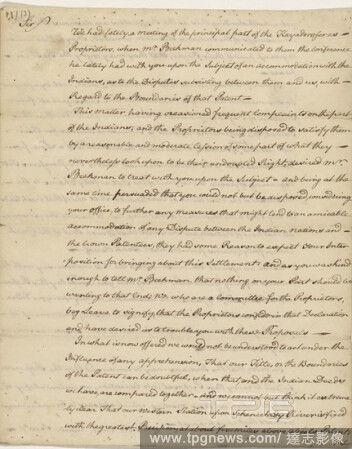 Sir
We had lately a meeting of the principal part of the Kayaderosseras
Proprietors, when Mr. Beekman communicated to them the conference
he lately had with you upon the Subject of an accommodation with the
Indians, as to the Disputes subsisting between them and us, with
Regard to the Boundaries of that Patent —
This matter having occasioned frequent Complaints on the part
of the Indians, and the Proprietors being disposed to satisfy them
by a reasonable and moderate Cession of some part of what they
nevertheless look upon to be their undoubted Right, desired Mr.
Beekman to treat with you upon the Subject — and being at the
same time persuaded that you could not but be disposed, considering
your office, to further any measures that might tend to an amicable
accommodation of any Dispute between the Indian nations and
the Crown Patentees, they had some Reason to expect Your Inter
position for bringing about this Settlement: and as you was kind
enough to tell Mr. Beekman that nothing on your Part should be
wanting to that End; We who are a Committee for the Proprietors,
beg Leave to signify, that the Proprietors confide in that Declaration
and have desired us to trouble you with these Proposals —
In what is now offered we would not be understood to act under the
Influence of any apprehension, That our Title, or the Boundaries
of the Patent can be doubtful, when that and the Indian Deeds
we have, are compared together — and we cannot but think it extreme
ly clear That our Western Station upon Schenectady River is fixed
with the greatest Precision at
www.tpgnews.com / 達志影像